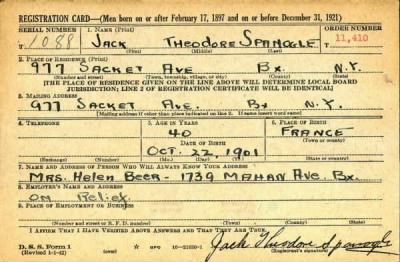 REGISTRATION CARD—(Men born on or after February 17, 1897 and on or before December 31, 1921)
SERIAL NUMBER 1. NAME (Print) ORDER NUMBER
1088 JACK THEODORE SPANOGLE 11,410
(First) (Middle) (Last)
2. PLACE OF RESIDENCE (Print)
977 SACKET AVE BX. N.Y.
(Number and street) (Town, township, village, or city) (County) (State)
[THE PLACE OF RESIDENCE GIVEN ON THE LINE ABOVE WILL DETERMINE LOCAL BOARD
JURISDICTION; LINE 2 OF REGISTRATION CERTIFICATE WILL BE IDENTICAL]
3. MAILING ADDRESS
977 SACKET AVE. BX N.Y.
[Mailing address if other than place indicated on line 2. If same insert word same]
4. TELEPHONE 5. AGE IN YEARS 6. PLACE OF BIRTH
40 FRANCE
DATE OF BIRTH (Town or county)
OCT. 22, 1901
(Exchange) (Number) (Mo.) (Day) (Yr.) (State or country)
7. NAME AND ADDRESS OF PERSON WHO WILL ALWAYS KNOW YOUR ADDRESS
MRS. HELEN BEER - 1739 MAHAN AVE. BX.
8. EMPLOYER'S NAME AND ADDRESS
ON Relief.
9. PLACE OF EMPLOYMENT OR BUSINESS
(Number and street or R. F. D. number) (Town) (County) (State)
I AFFIRM THAT I HAVE VERIFIED ABOVE ANSWERS AND THAT THEY ARE TRUE.
D. S. S. Form 1
(Revised 1-1-42) GPO Jack Theodore Spanogle
(Registrant's signature)